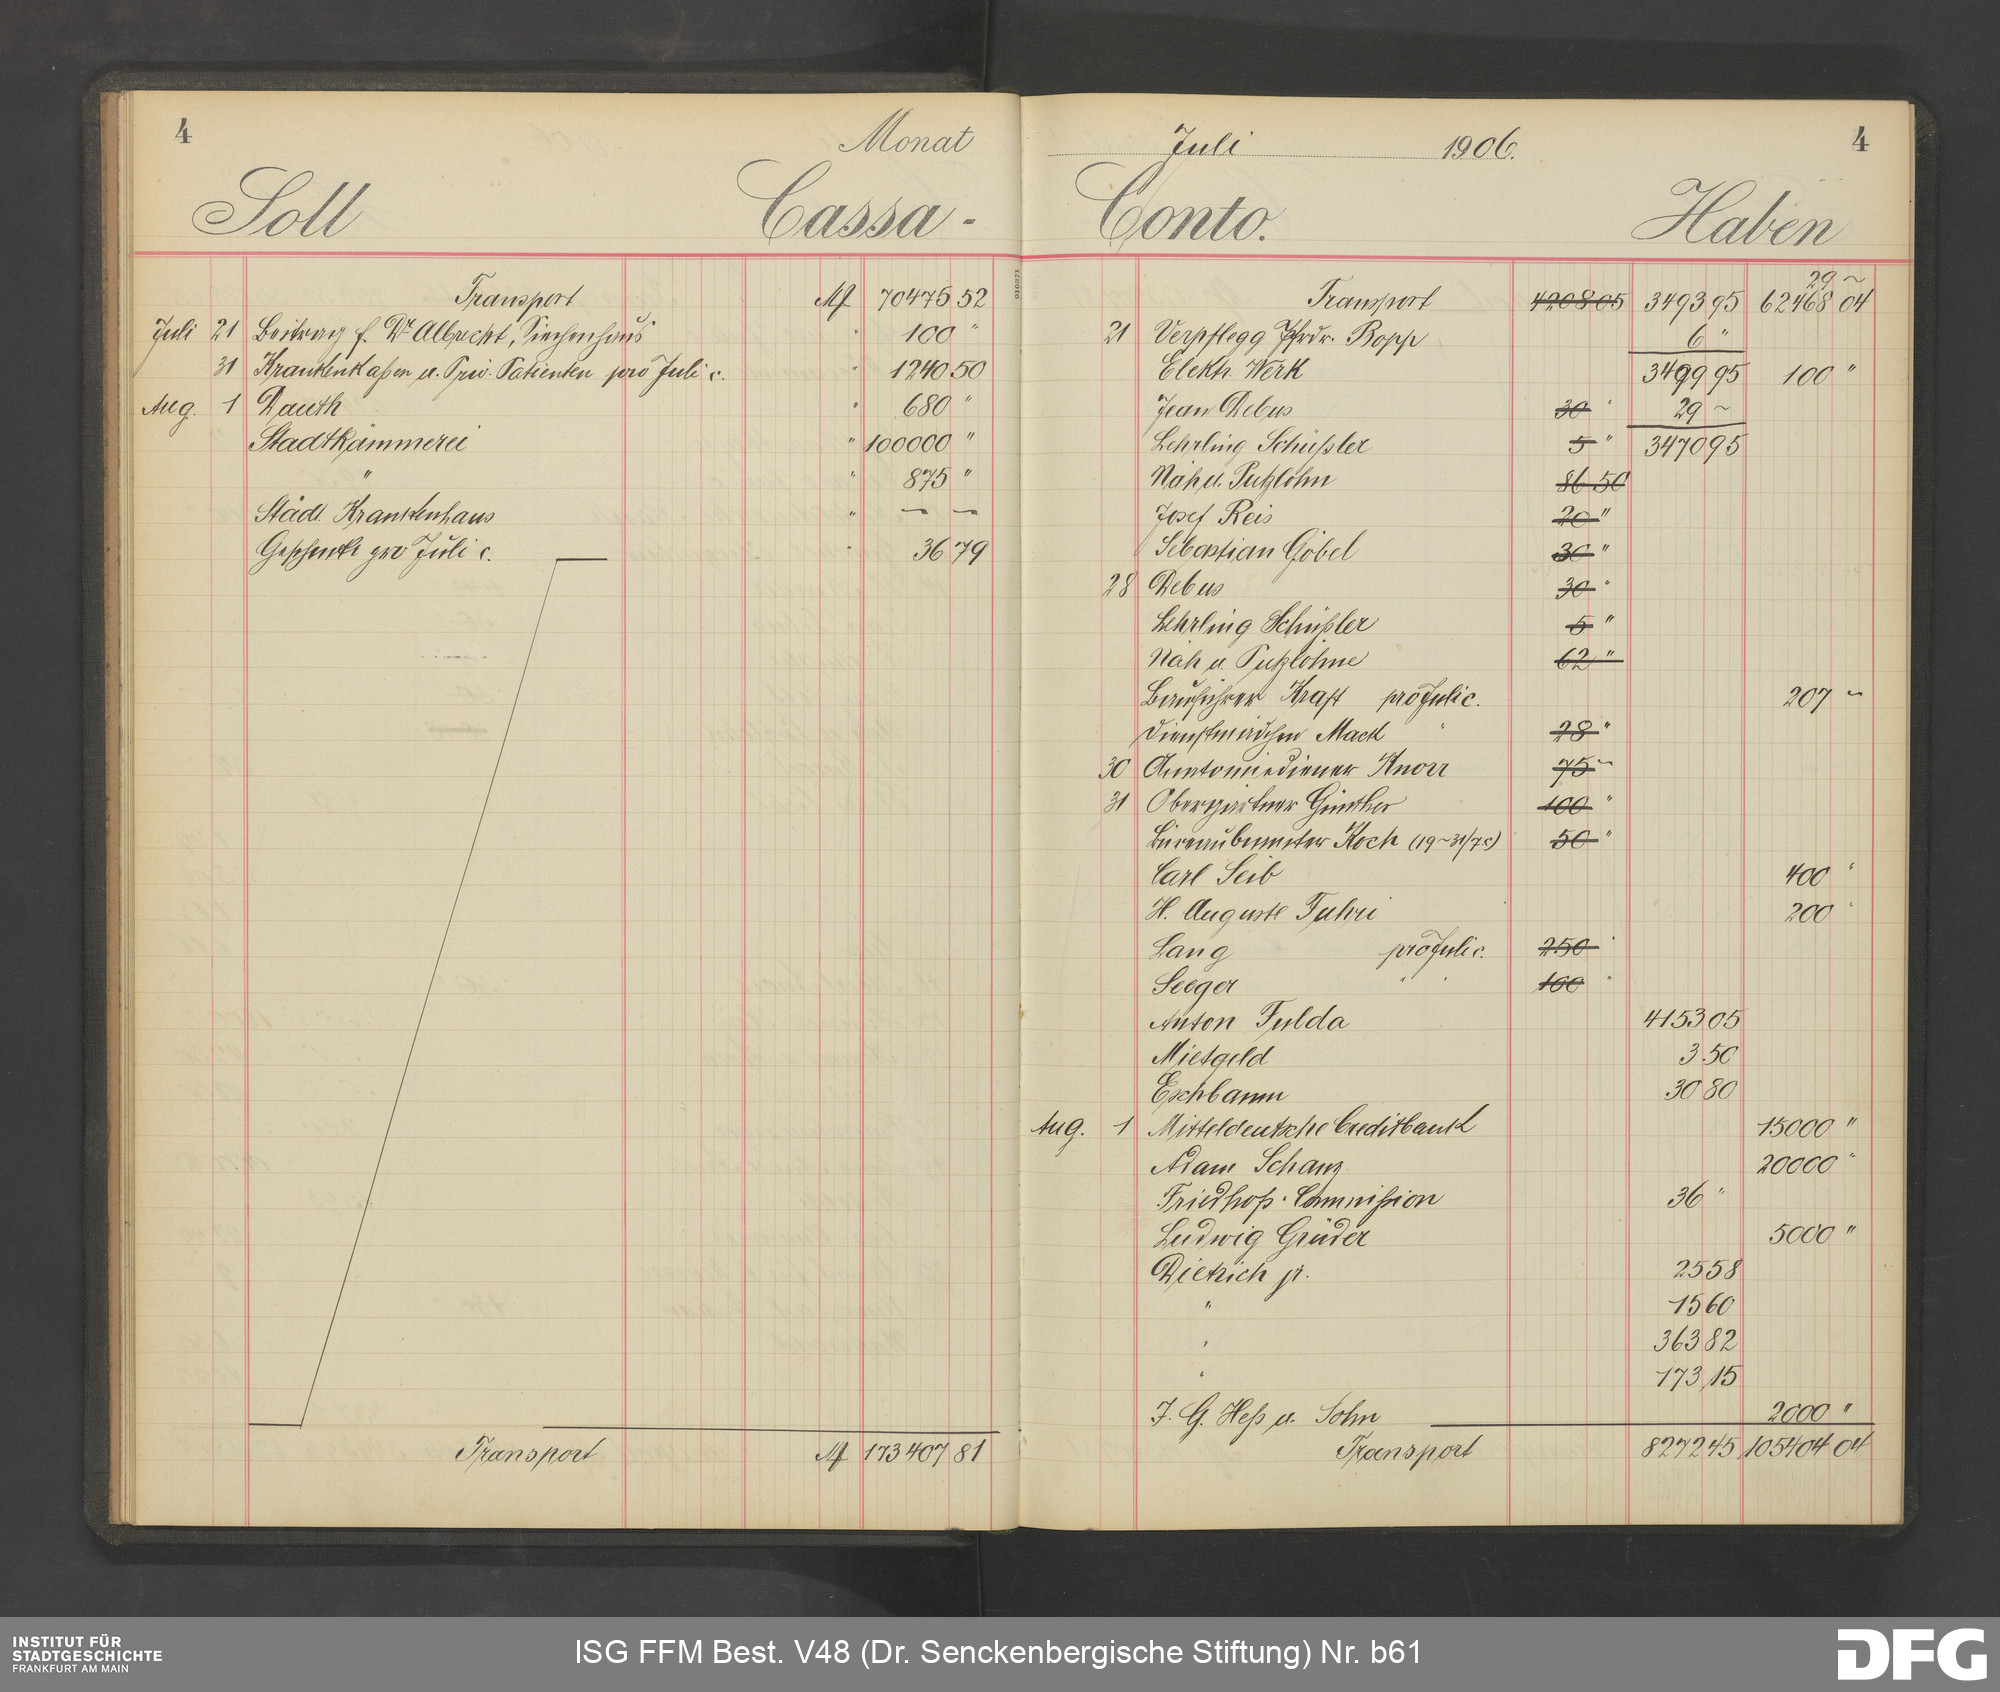 4 Monat
Soll Cassa -
Transport M 70475 52
Juli 21 Beitrag f. Dr Albrecht, Siechenhaus " 100 "
31 Krankenkaßen u. Priv. Patienten pro Juli c. " 1240 50
Aug. 1 Dauth " 680 "
Stadtkämmerei " 100000 "
" " 875 "
Städt. Krankenhaus " — —
Geschenke pro Juli c. " 36 79
Transport M 173407 81
Juli 1906. 4
Conto. Haben
29 ~
Transport 4208 05 3493 95 62468 04
21 Verpflegg Pfrdr. Bopp 6 "
Elektr. Werk 3499 95 100 "
Jean Debus 30 " 29 ~
Lehrling Schüßler 5 " 3470 95
Näh u. Putzlohn 86 50
Josef Reis 20 "
Sebastian Göbel 30 "
28 Debus 30 "
Lehrling Schüßler 5 "
Näh u. Putzlöhne 62 "
Bauführer Kraft pro Juli c. 207 ~
Dienstmädchen Mack " 28 "
30 Anatomiediener Knorr 75 ~
31 Obergärtner Günther 100 "
Büreaubeamter Koch (19~31/7 c) 50 "
Carl Seib 400 "
H. Auguste Fuhri 200 "
Lang pro Juli c. 250 "
Seeger " " 100 "
Anton Fulda 4153 05
Mietgeld 3.50
Eschbaum 30 80
Aug. 1 Mitteldeutsche Creditbank 15000 "
Adam Schanz 20000 "
Friedhofs-Commißion 36 "
Ludwig Grüder 5000 "
Dietrich jr. 25 58
" 15 60
" 363 82
" 173 15
J. G. Heß u. Sohn 2000 "
Transport 8272 45 105404 04
INSTITUT FÜR
STADTGESCHICHTE
FRANKFURT AM MAIN
ISG FFM Best. V48 (Dr. Senckenbergische Stiftung) Nr. b61
DFG